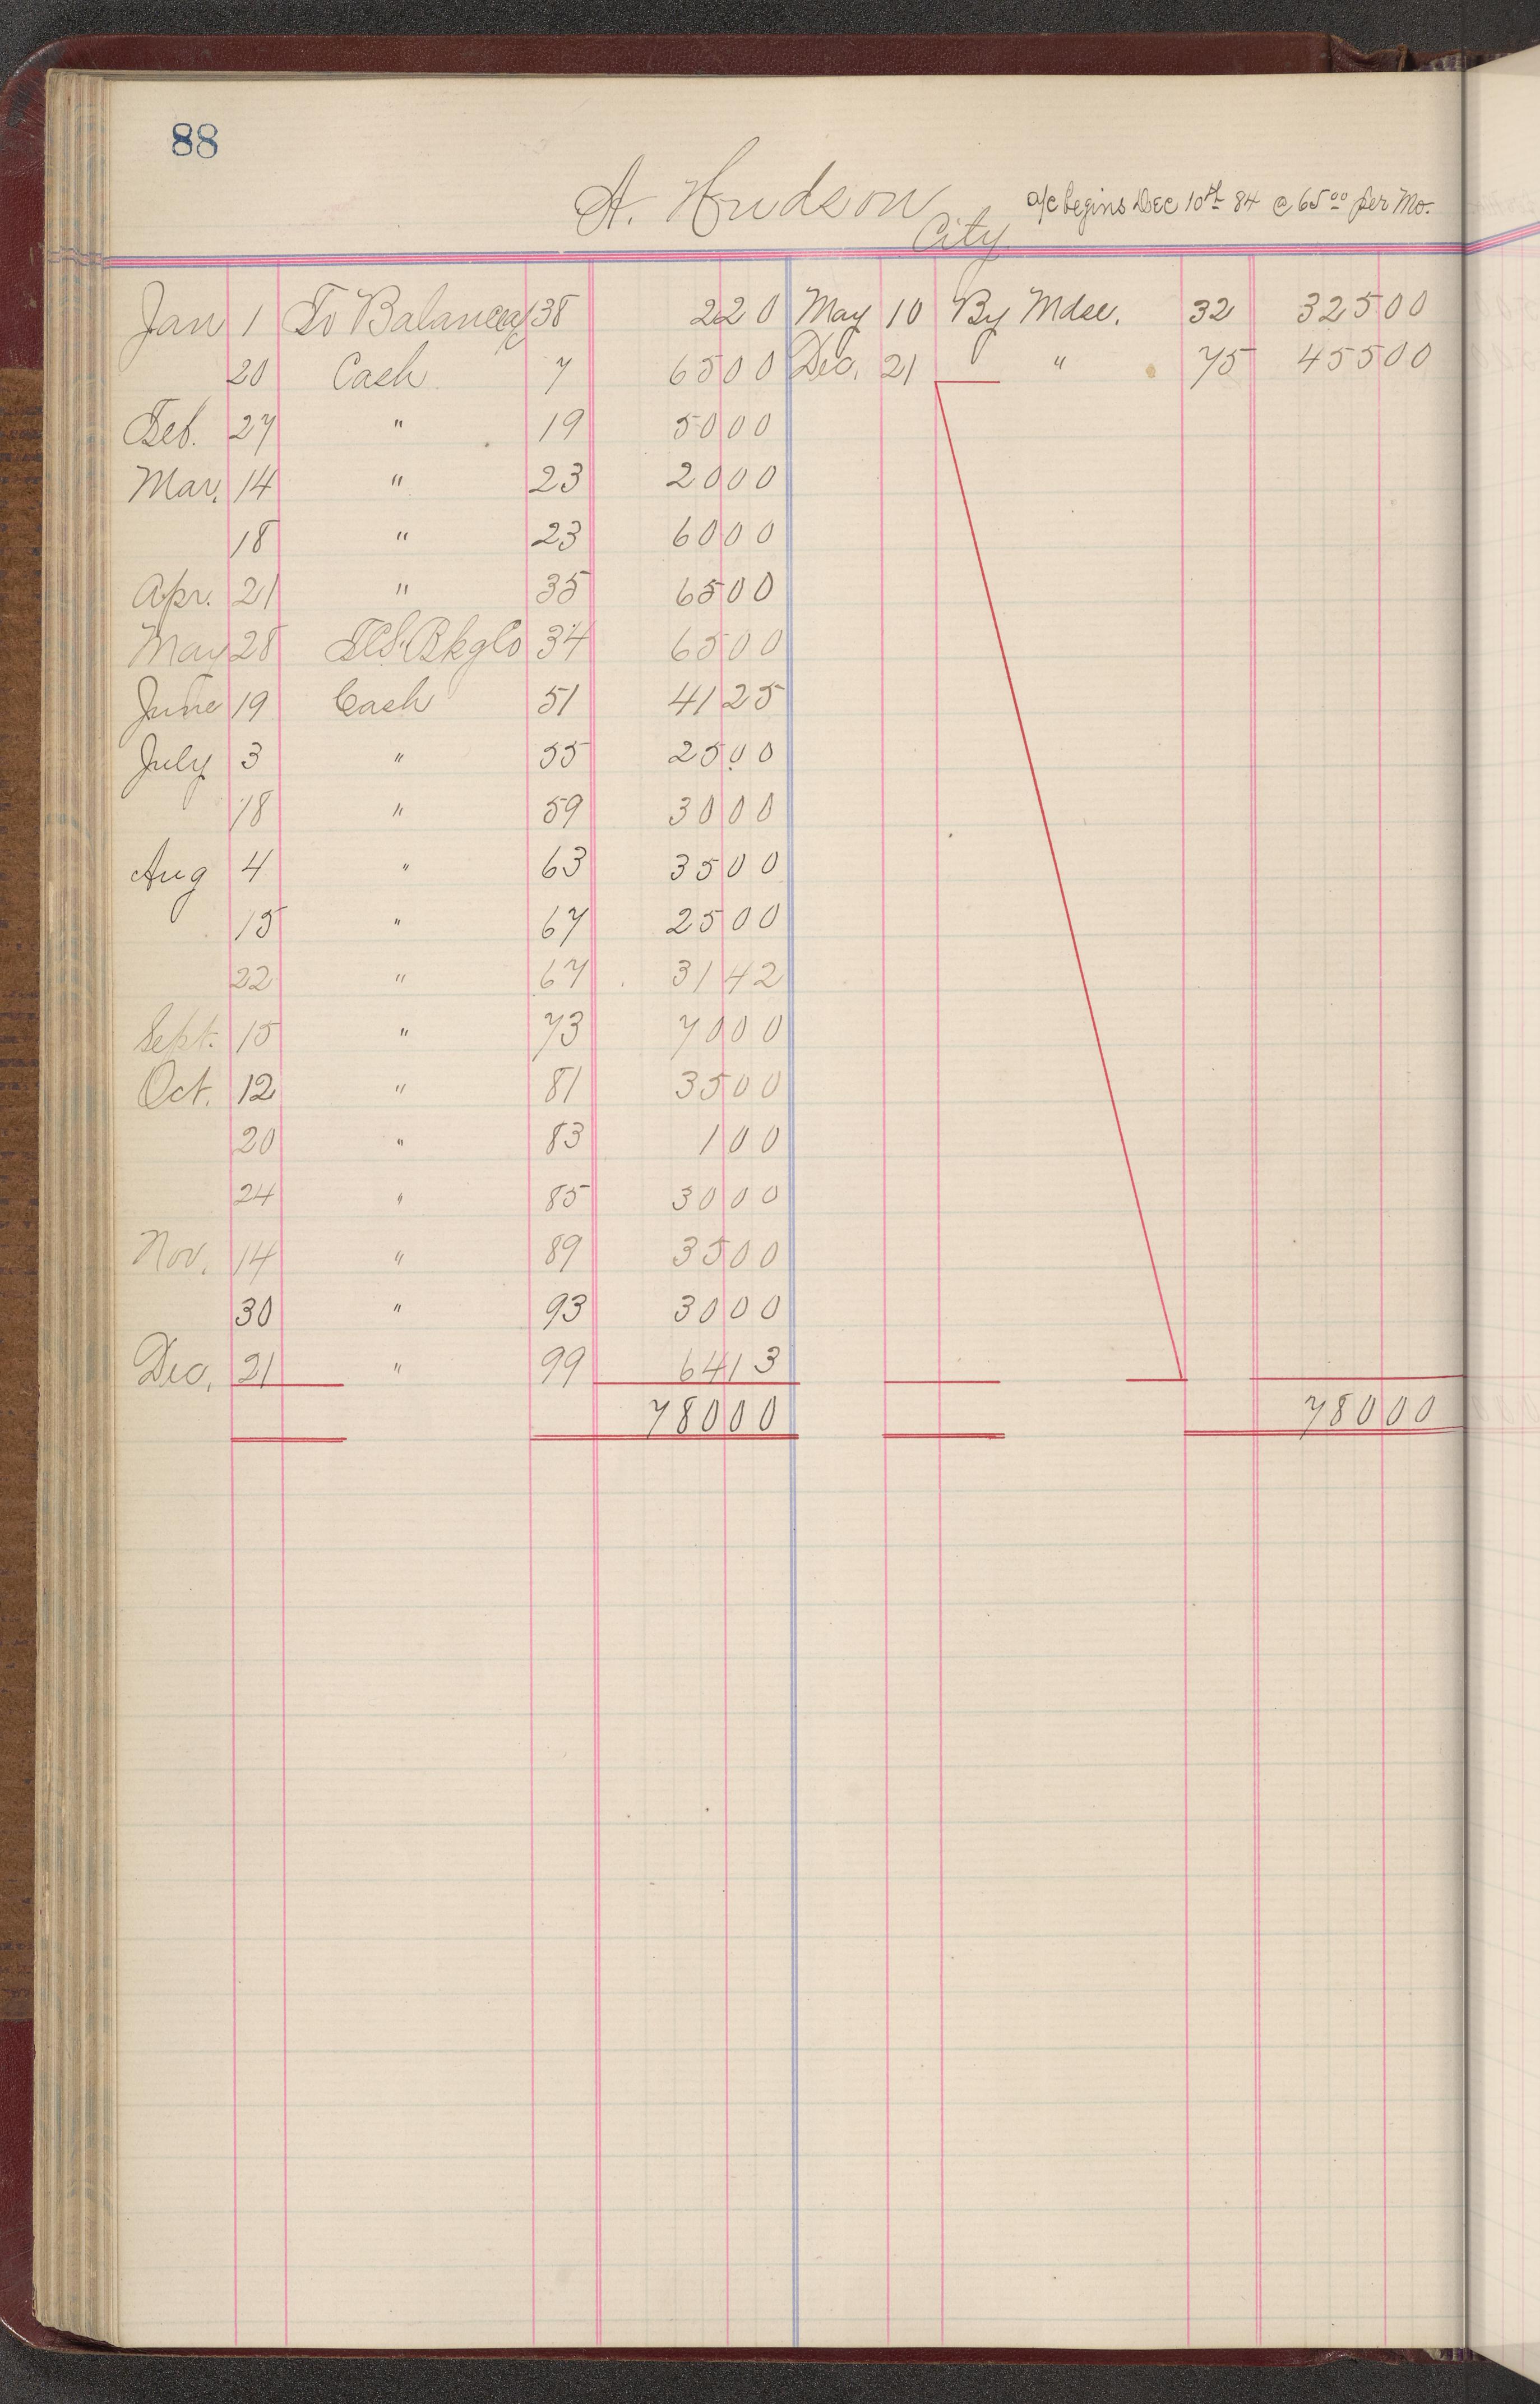 88
A. Hudson
City
a/c begins Dec 10th 84 @ 65 00 per Mo.
Jan 1 To Balance a/c 38 2 20 May 10 By Mdse. 32 325 00
20 Cash 7 65 00 Dec. 21 " 75 455 00
Feb. 27 " 19 50 00
Mar. 14 " 23 20 00
18 " 23 60 00
Apr. 21 " 35 65 00
May 28 Bkg Co 34 65 00
June 19 Cash 51 41 25
July 3 " 55 25 00
18 " 59 30 00
Aug 4 " 63 35 00
15 " 67 25 00
22 " 67 31 42
Sept. 15 " 73 70 00
Oct. 12 " 81 35 00
20 " 83 1 00
24 " 85 30 00
Nov. 14 " 89 35 00
30 " 93 30 00
Dec. 21 " 99 64 13
780 00 780 00